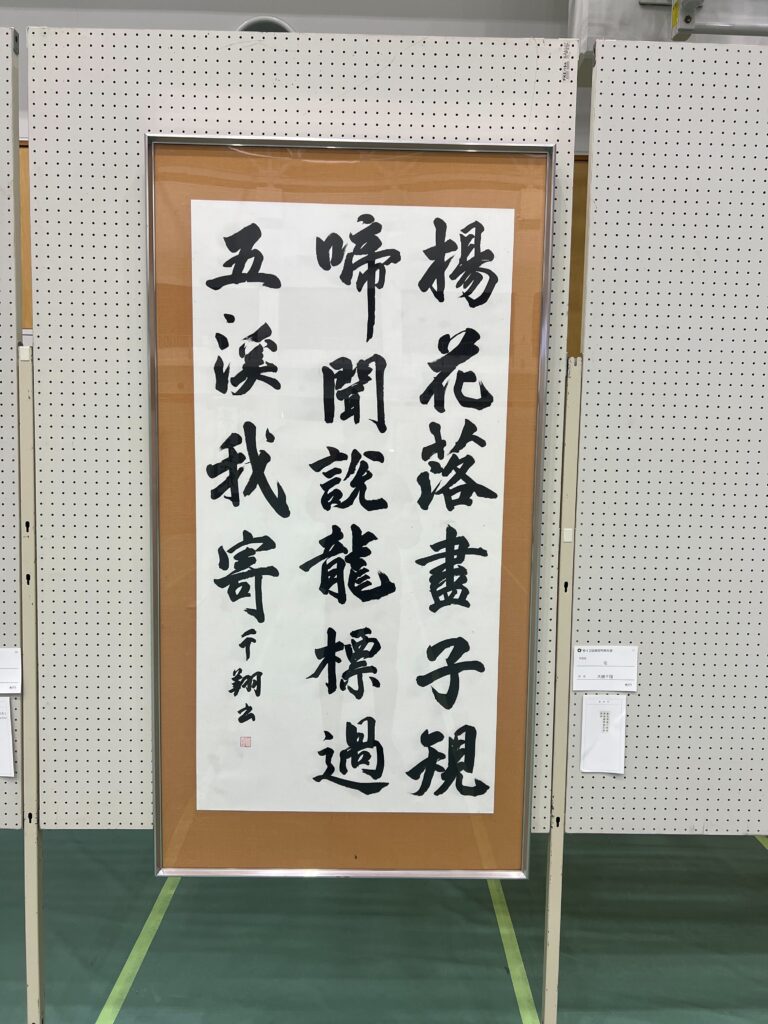 楊花落盡子規
啼聞說龍標過
五溪我寄
千翔書